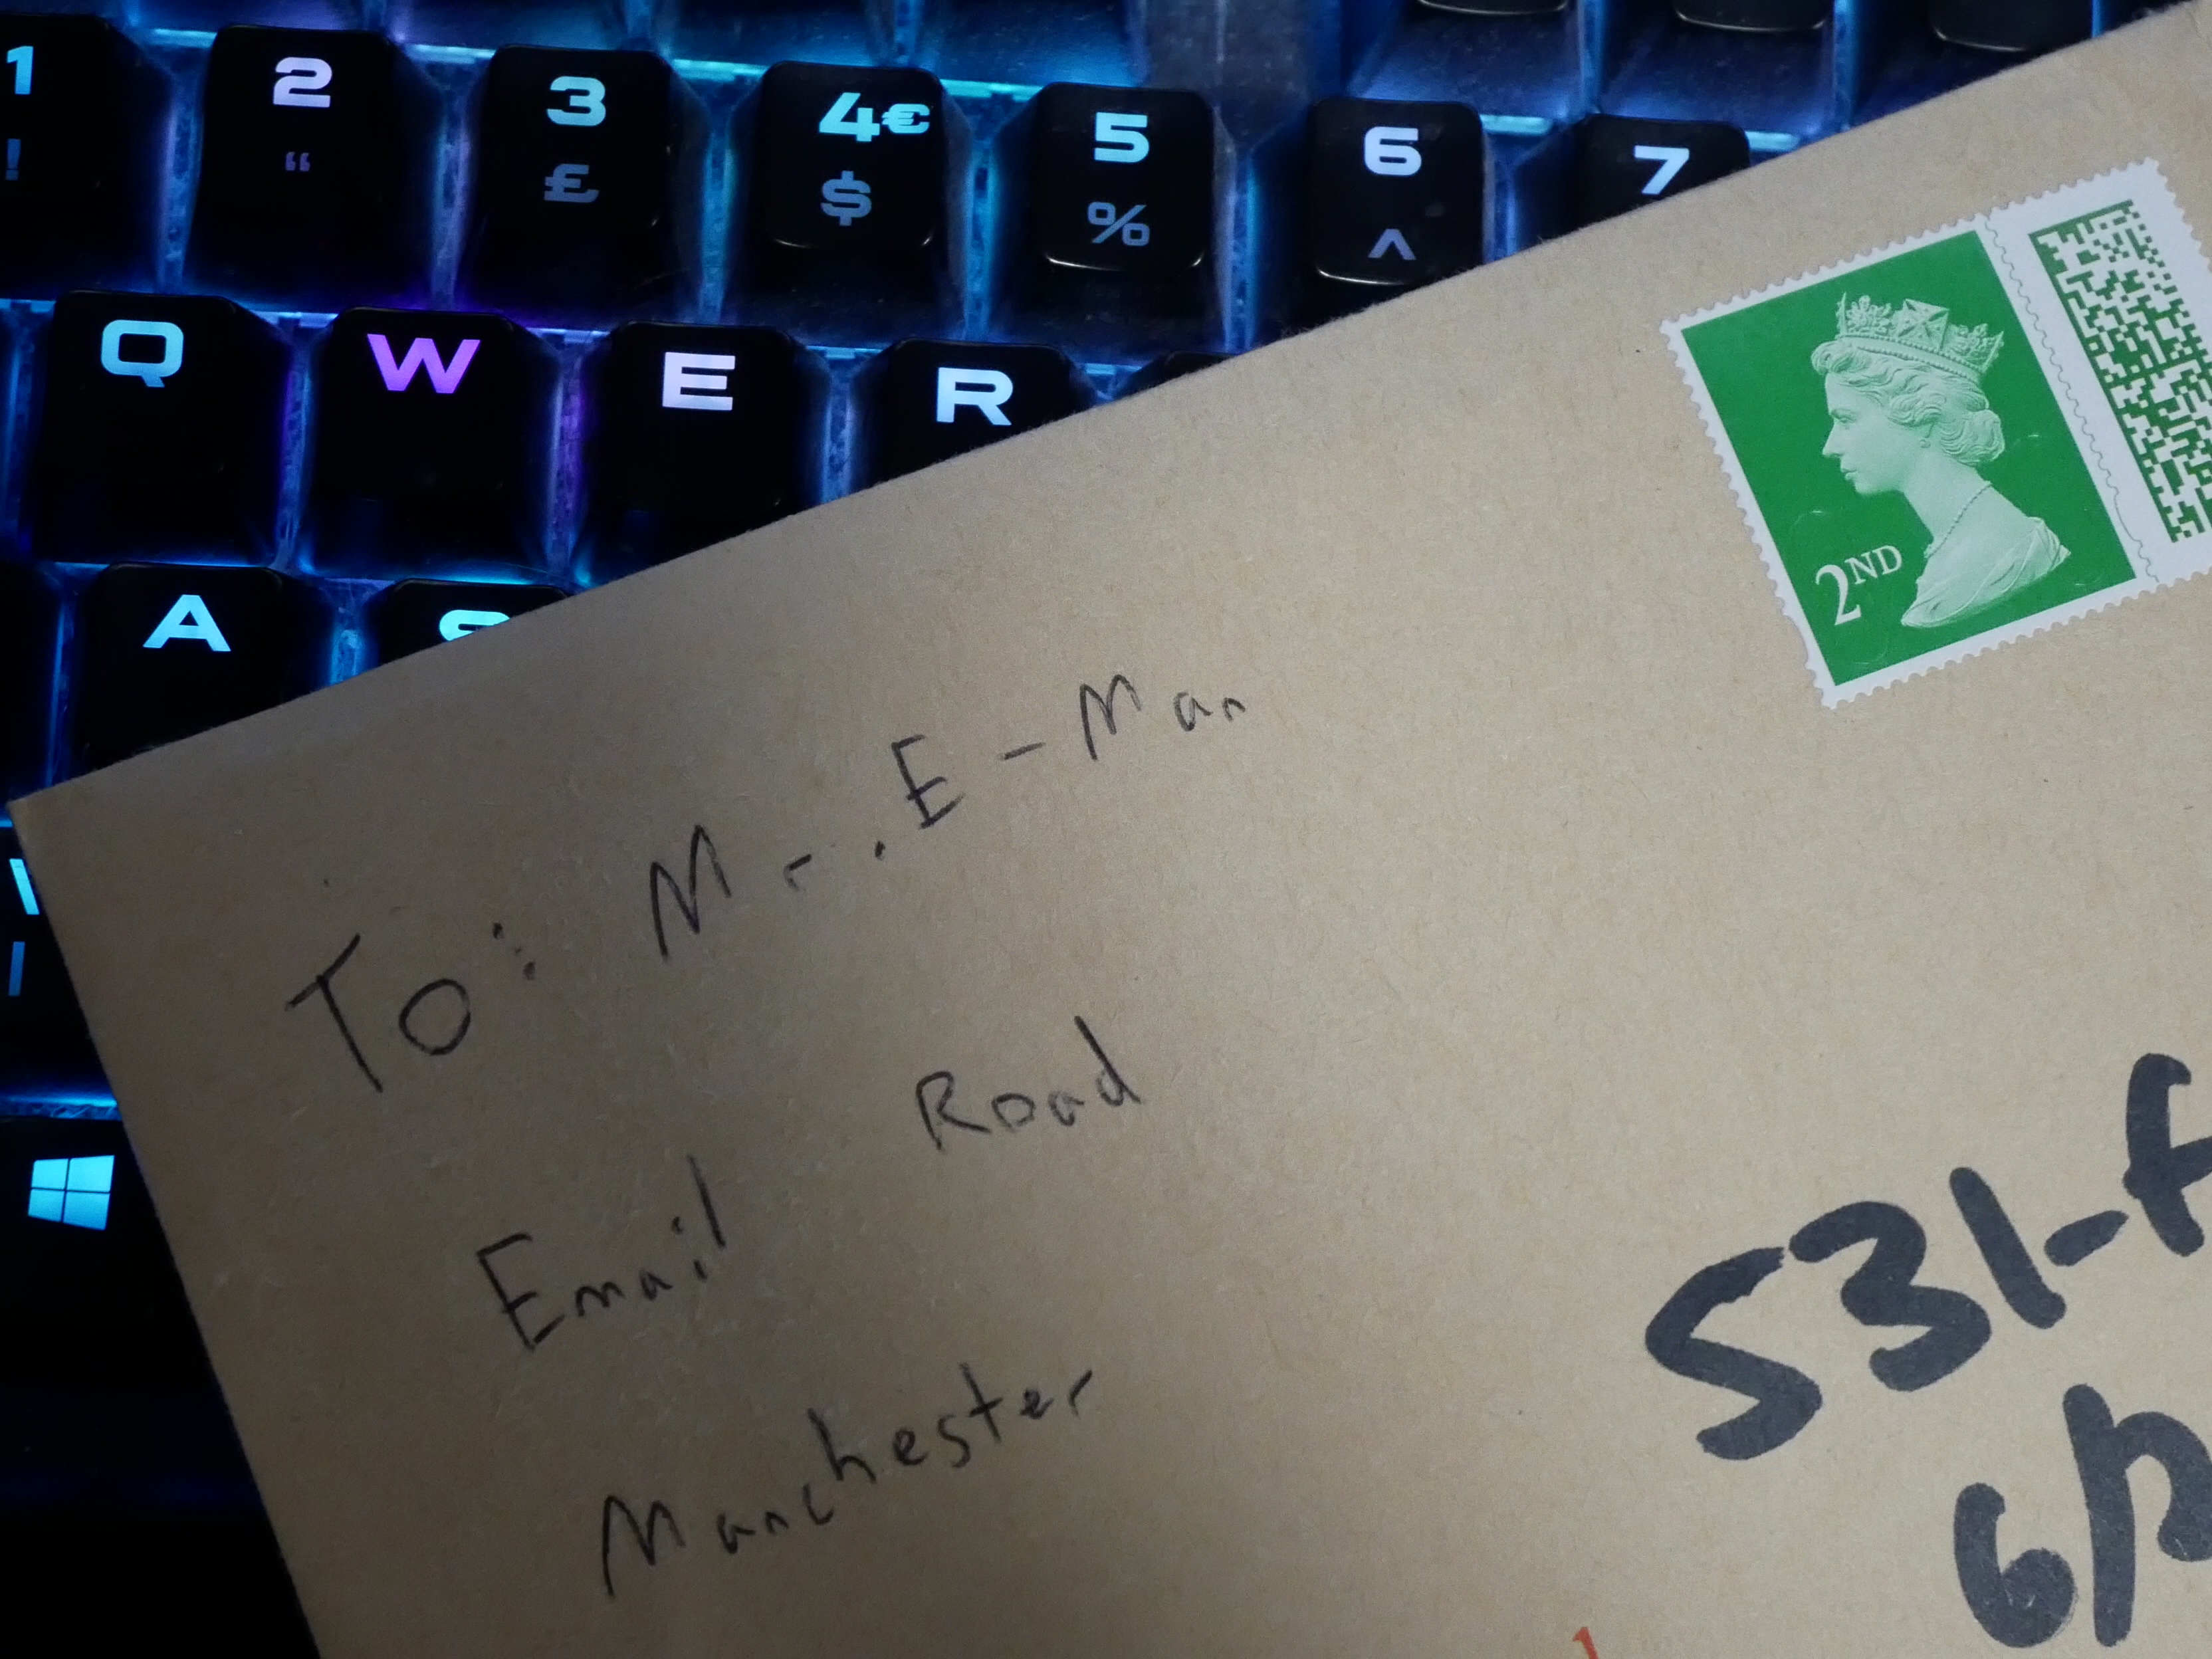 1 2 3 4€ 5 6 7
! “ £ $ % ^
Q W E R
A S
\
|
2ND
To: Mr. E-Man
Email Road
Manchester
531-f
6
1